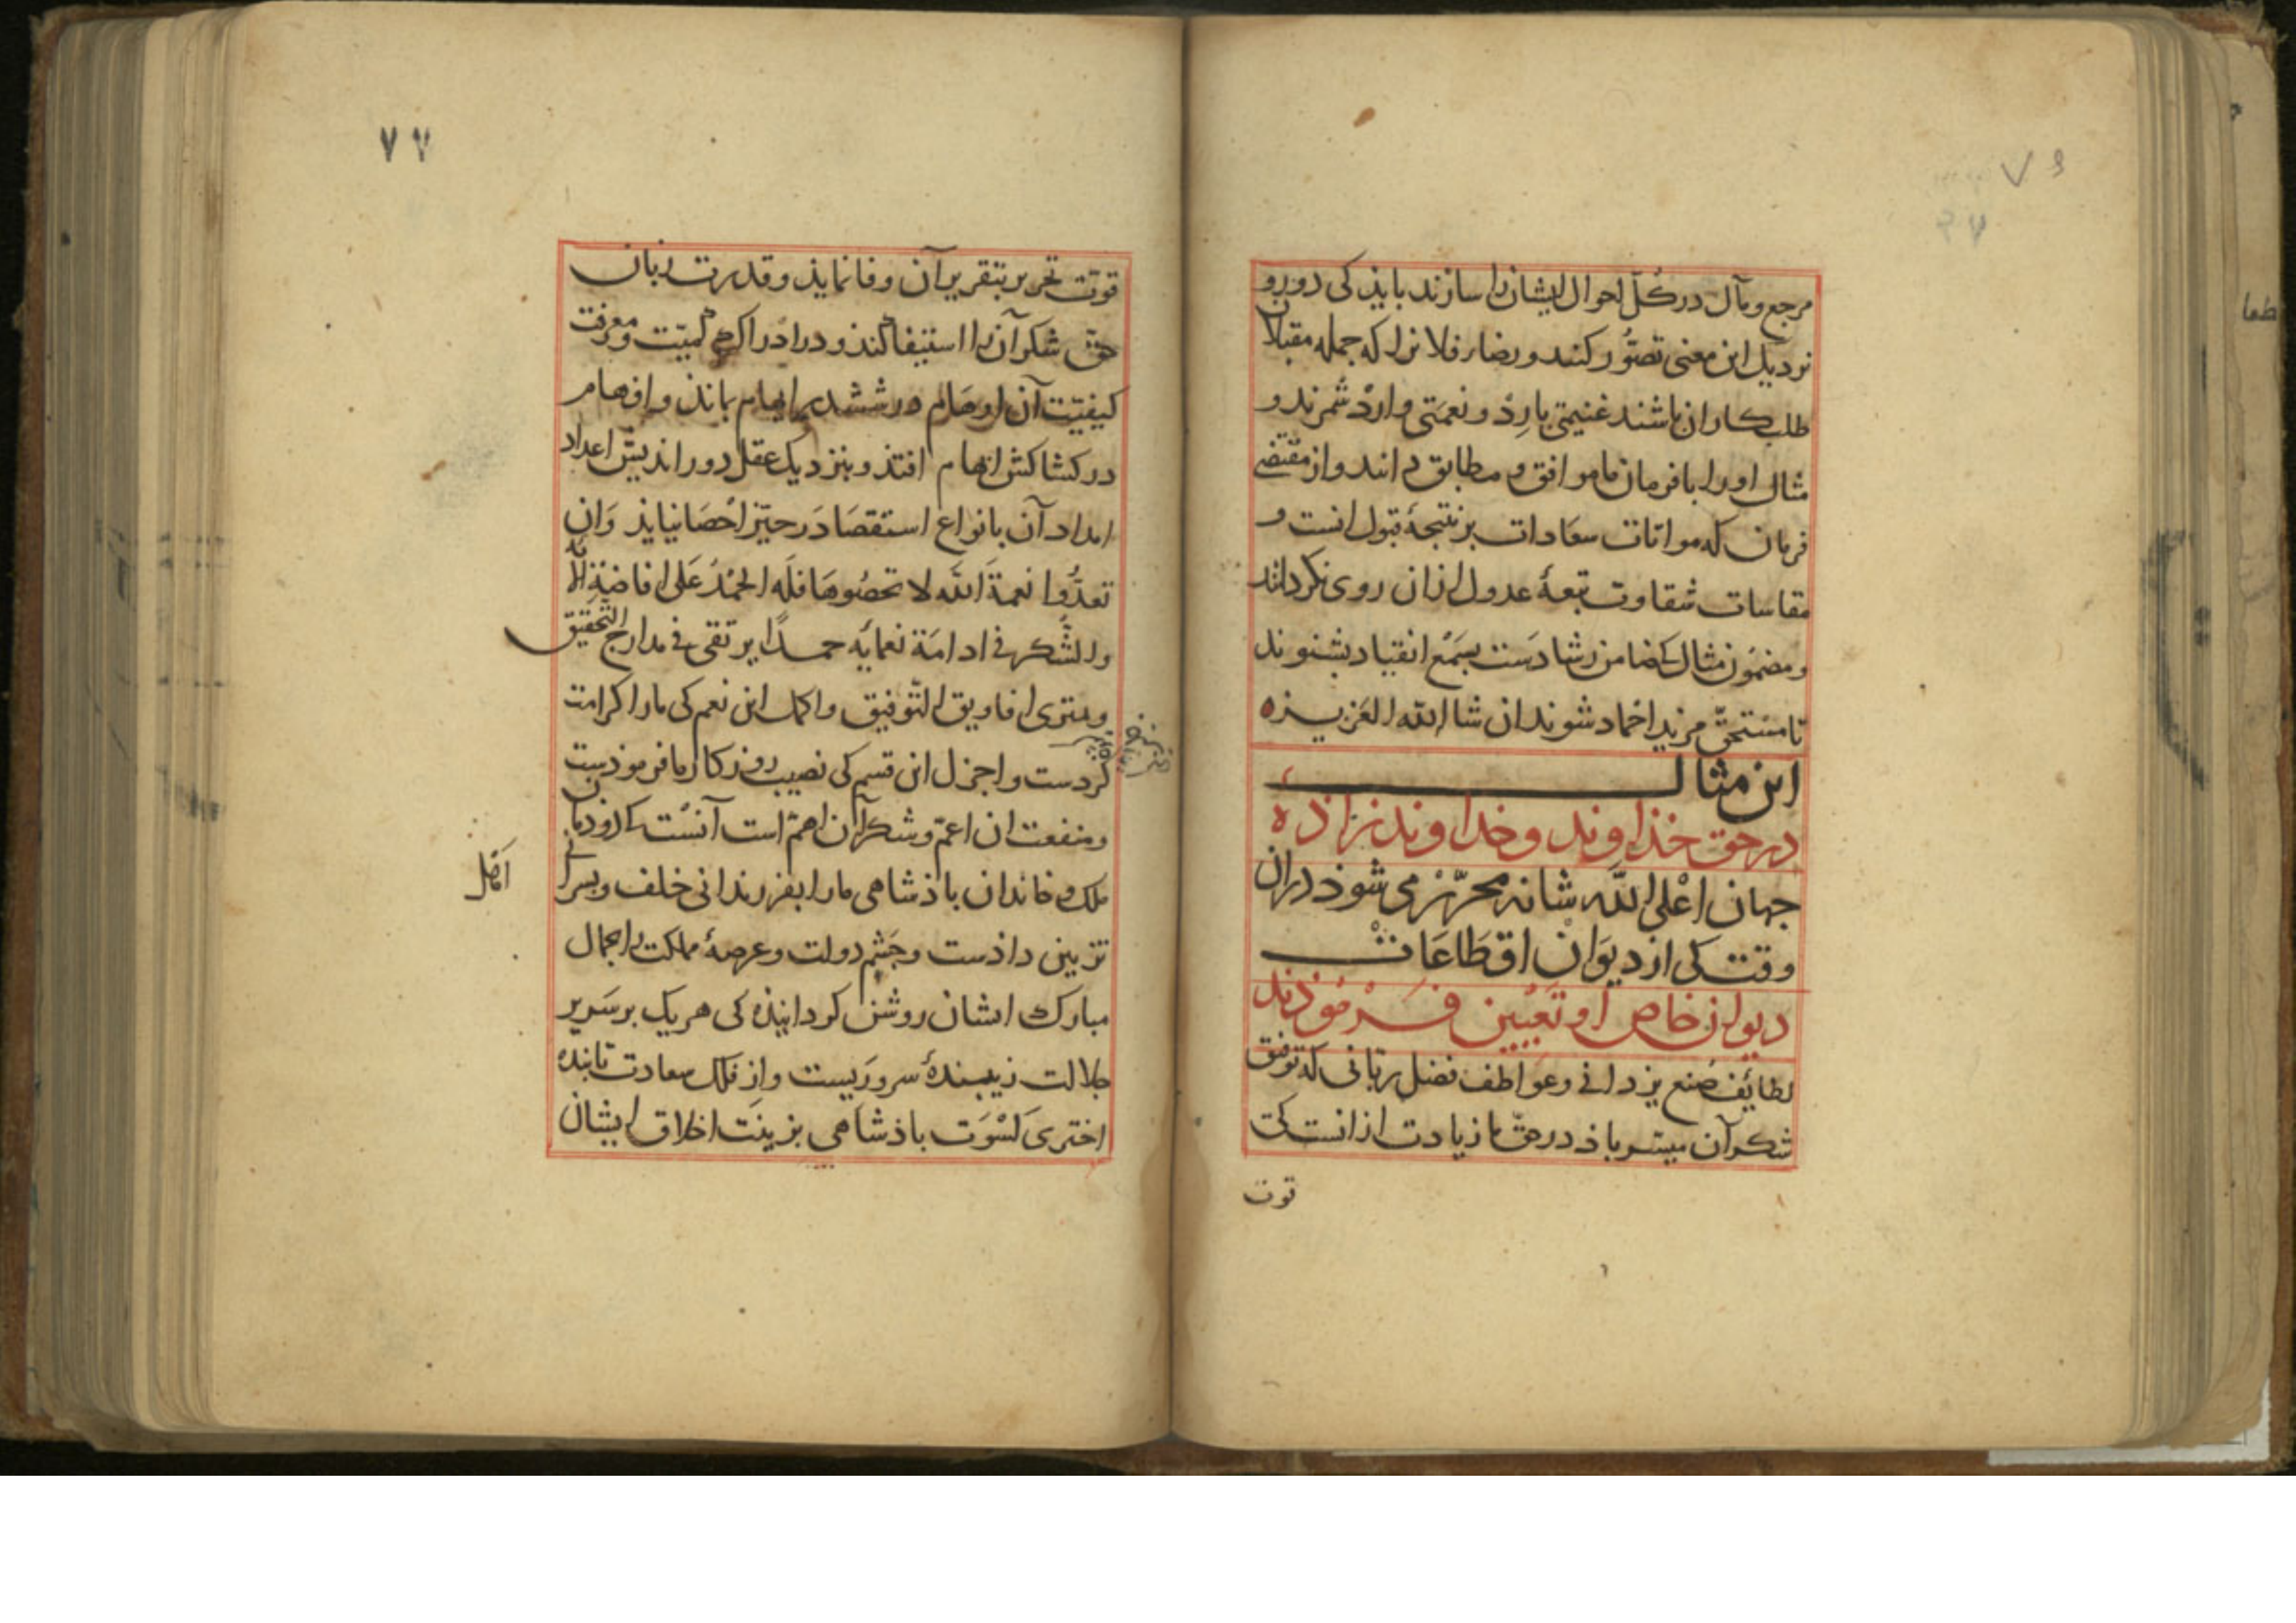 مرجع و مآل در کلّ احوال ایشان را سازند باید کی دور و
نزدیک این معنی تصوّر کنند و رضاء فلان را که جمله مقبلان
طلب کار ان باشند غنیمتی بارِدْ و نعمَتی واردْ شمرند و
مثال اورا با فرمان ما موافق و مطابق دانند و از مقتضی
فرمان که مواتات سعادات بر نتیجهٔ قبول انست و
مقاسات شقاوت تبعهٔ عدول ازان روی نکردانند
و مضمون مثال کی ضامن رشادَست بسَمْع انقیاد بشنوند
تا مستحقّ مزید احماد شوند ان شا الله العَزیزه
این مثال
در حق خذاوند و خداوند زاذه
جهان اعْلی الله شانه محرّر می شوذ دران
وقت کی از دیوَانْ اقطاعَاتْ
دیوان خاص او تَعْیین فَرْمُوْذند
لطائِف صُنع یزدانی و عواطف فضل ربّانی که توفیق
شکر آن میسّر باذ در حقّ ما زیادت ازانست کی
قوت
۷۷
قوّت تحریر بتقریر آن وفا نماید و قدرت زبان
حقّ شکر آن را استیفا کند و در ادراک کمیّت و معرفت
کیفیّت آن اوهام در ششدر ابهام بماند و افهام
در کشاکش اتهام افتد و بنزدیک عقل دور اندیش اعداد
امداد آن بانواع استقصا دَر حیّز احْصَا نیاید وَان
تعدُّوا نعمةَ الله لا تحصُوهَا فلَه الحَمْدُ عَلی افاضَةِ آلائه
والشّکر فی ادامَة نعمائِه حمدًا یرتقی فی مدارج التّحقیق
و یمتری افاویق التّوفیق و اکمل این نعم کی مارا کرامت
کردست و اجزل این قسم کی نصیب روزکار ما فرموذست
و منفعت ان اعمّ و شکر آن اهمّ است آنسْت کی دوذمان
ملک و خاندان باذشاهی مارا بفرزندانی خلف و بسزا
تزیین داذست و چَشم دولت و عرصهٔ مملکت را بجمال
مبارک ایشان روشن کردانیذه کی هر یک بر سَریر
جلالت زیبندهٔ سروریست و از فلک سعادت تابنده
اختری کسْوَت باذشاهی بزینَت اخلاق ایشان